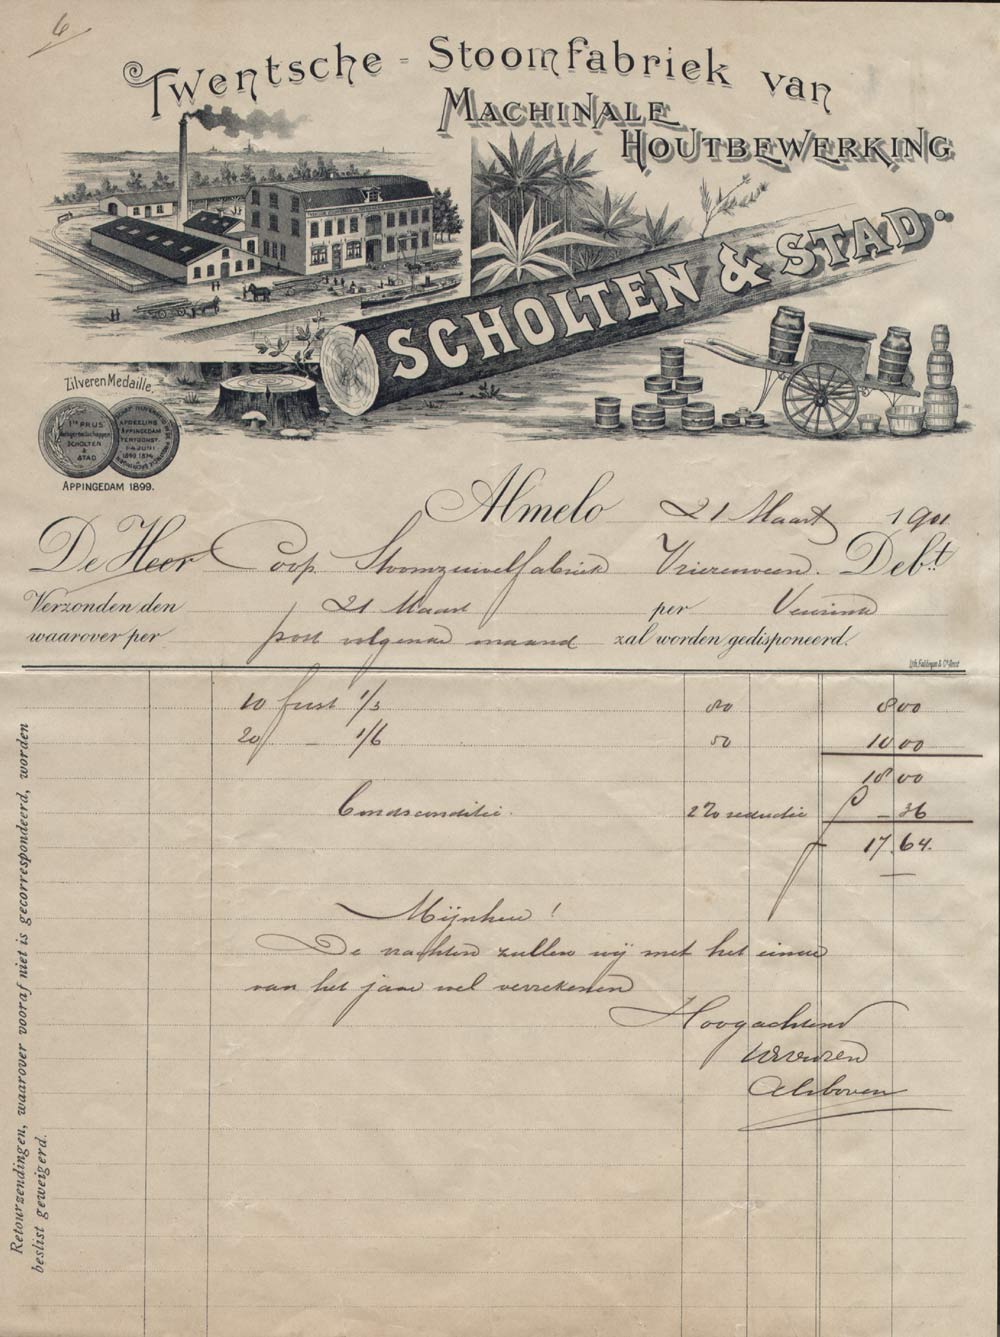 6
Twentsche = Stoomfabriek van
MACHINALE
HOUTBEWERKING
SCHOLTEN & STAD.
Zilveren Medaille.
1ste PRIJS
SCHOLTEN
&
STAD
AFDEELING
APPINGEDAM
TENTOONST.
APPINGEDAM 1899.
Almelo 21 Maart 1901
De Heer Coop. Stoomzuivelfabriek Vriezenveen. Debt.
Verzonden den 21 Maart per
waarover per post volgende maand zal worden gedisponeerd.
10 fust 1/3 80 8 00
20 — 1/6 50 10 00
18 00
Bondsconditie. 2% reductie — 36
17.64.
Mijnheer!
De vrachten zullen wij met het einde
van het jaar wel verrekenen
Hoogachtend
Alsboven
Retourzendingen, waarover vooraf niet is gecorrespondeerd, worden
beslist geweigerd.